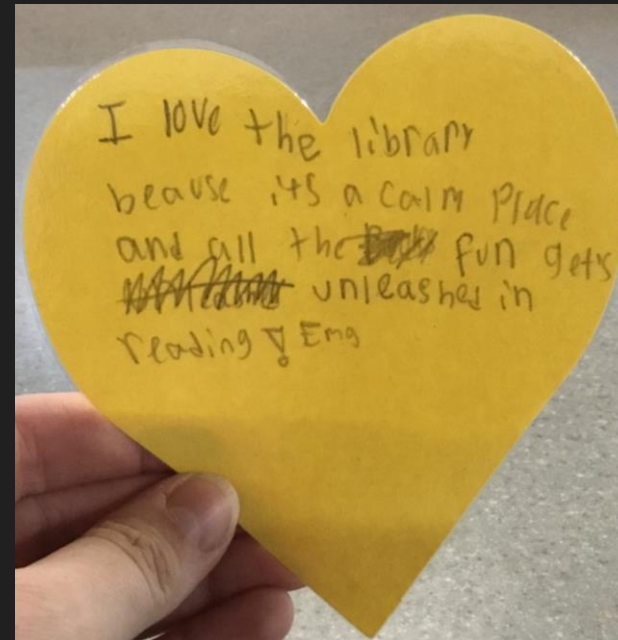 I love the library
beause its a calm Place
and all the fun gets
unleashed in
reading! Emg